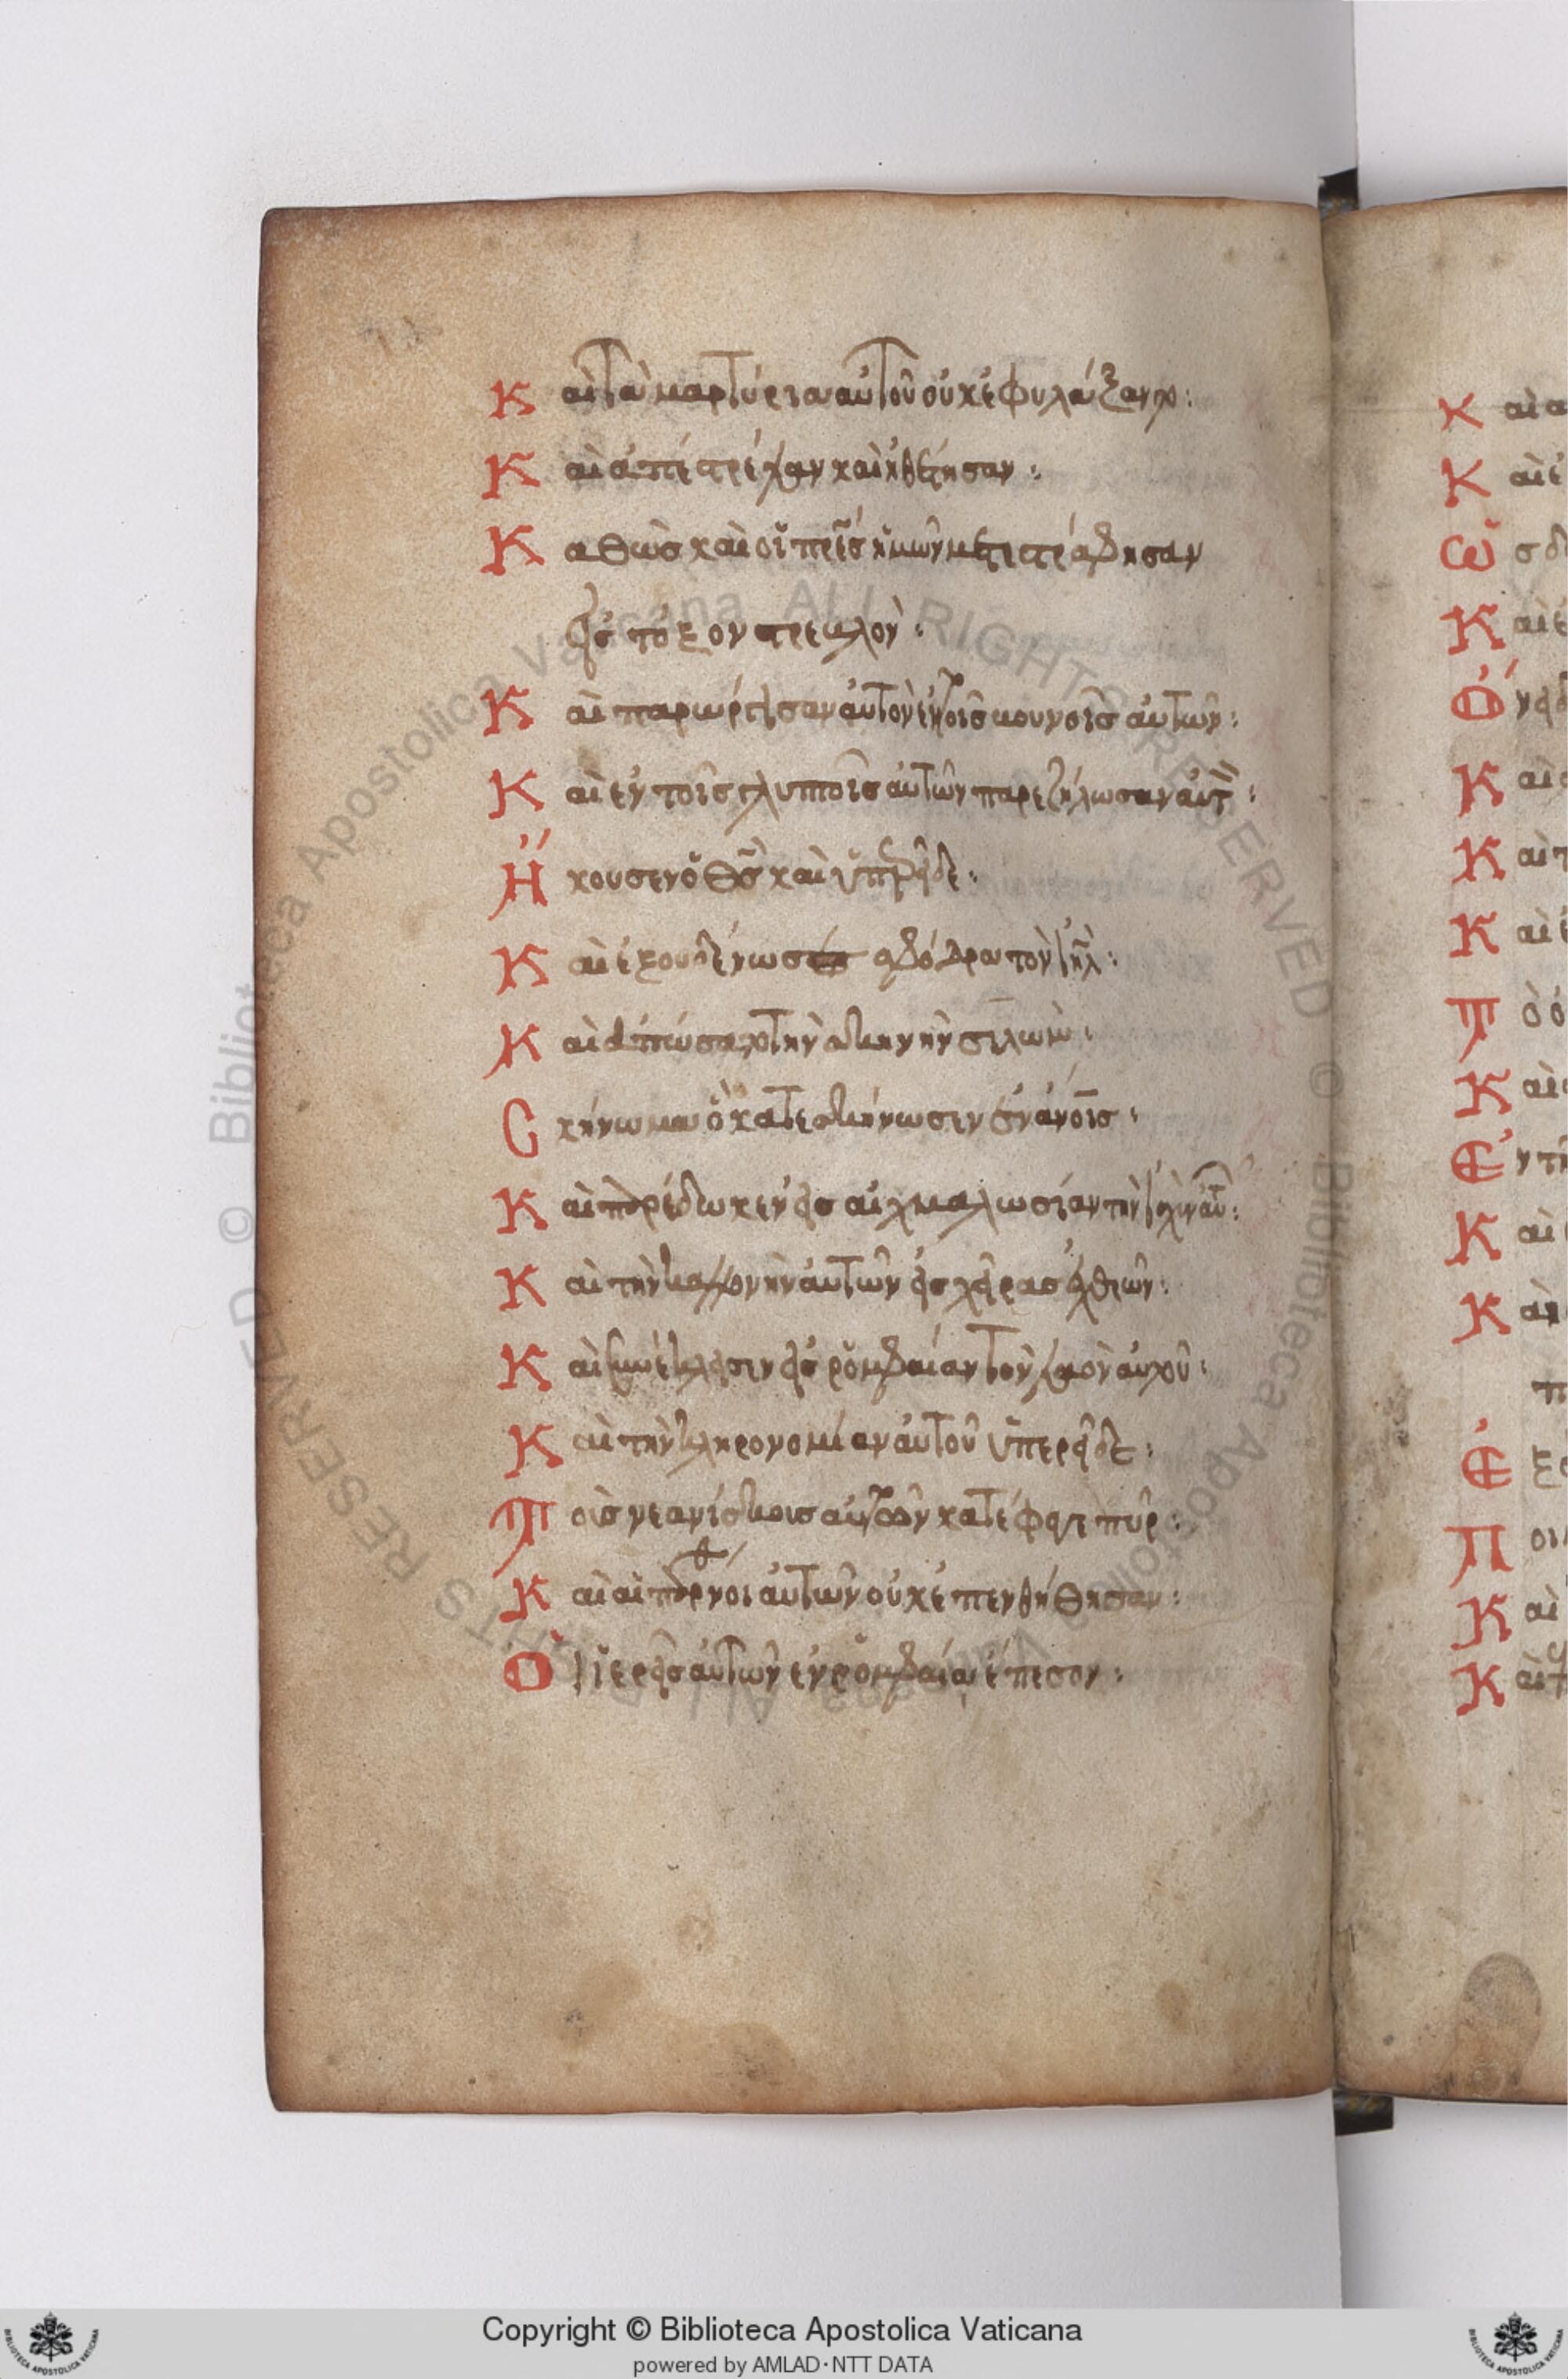 Καὶ τὰ μαρτύρια αὐτοῦ οὐκ ἐφυλάξαντο:
Καὶ ἀπέστρεψαν καὶ ἠθέτησαν:
Καθὼς καὶ οἱ πρ̅ε̅ς ἡμῶν μετεστράφησαν
εἰς τόξον στρεβλὸν:
Καὶ παρώργισαν αὐτὸν ἐν τοῖς βουνοῖς αὐτῶν:
Καὶ ἐν τοῖς γλυπτοῖς αὐτῶν παρεζήλωσαν αὐτ:
Ἤκουσεν ὁ Θς καὶ ὑπερεῖδε:
Καὶ ἐξουδένωσε σφόδρα τὸν Ἰηλ:
Καὶ ἀπώσατο τὴν σκηνὴν σιλὼμ:
Σκήνωμα ὃ κατεσκήνωσεν ἐν ἀνοις:
Καὶ παρέδωκεν εἰς αἰχμαλωσίαν τὴν ἰσχὺν αὐτ:
Καὶ τὴν καλλονὴν αὐτῶν εἰς χεῖρας ἐχθρῶν:
Καὶ συνέκλεισεν εἰς ρομφαίαν τὸν λαὸν αὐτοῦ:
Καὶ τὴν κληρονομίαν αὐτοῦ ὑπερεῖδε:
Τοὺς νεανίσκους αὐτῶν κατέφαγε πῦρ:
Καὶ αἱ παρθένοι αὐτῶν οὐκ ἐπενθήθησαν:
Οἱ ἱερεῖς αὐτῶν ἐν ρομφαία ἔπεσον:
Κ αὶ
Κ αὶ ἐ
Ὡ σ
Κ αὶ ἐ
Ὁ
Κ αὶ
Κ αὶ τ
Κ αὶ ἐ
Τ ὸ
Κ αὶ
Ἐ ν τῆ
Κ αὶ
Κ αὶ
Ἐ ξ
Π οι
Κ αὶ
Κ αὶ τ
Copyright © Biblioteca Apostolica Vaticana
powered by AMLAD·NTT DATA